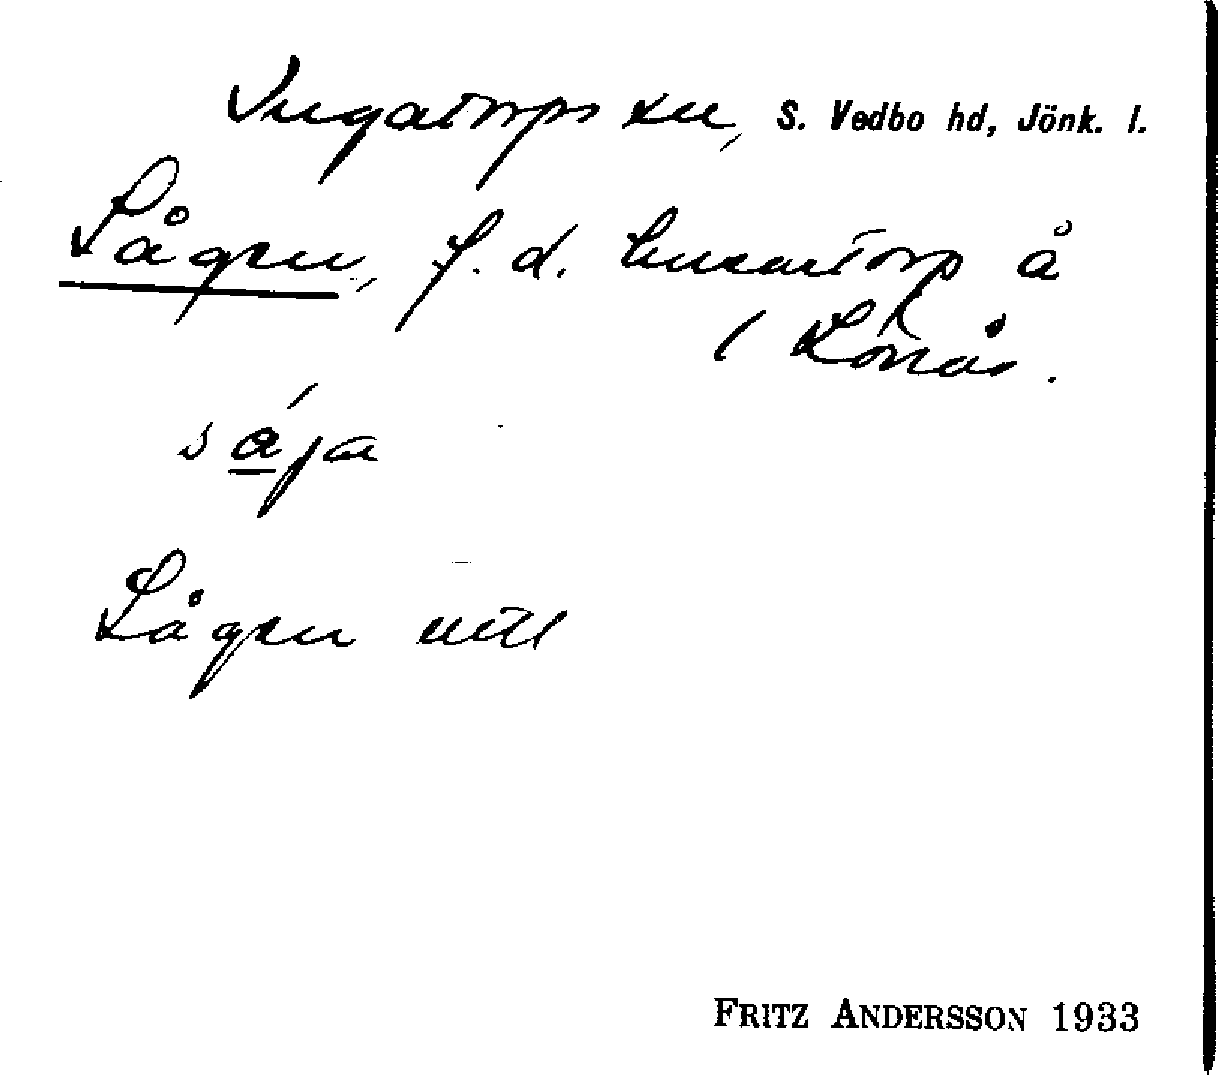 Ingatorps sn, S. Vedbo hd, Jönk. l.
Sågen, f.d. husartorp å
Lönås.
såja
Sågen
FRITZ ANDERSSON 1933